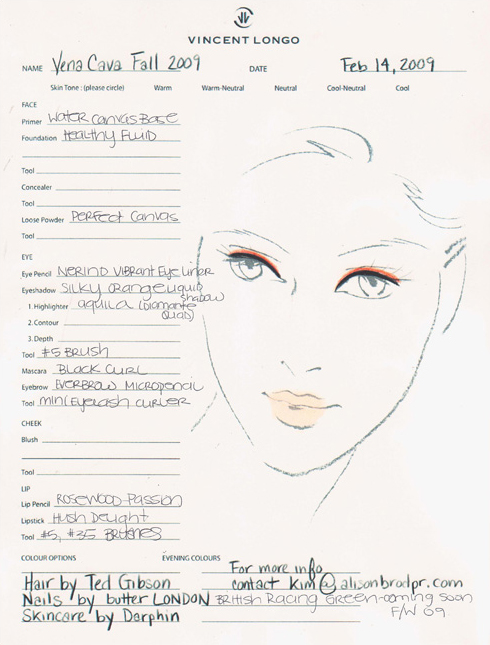 VINCENT LONGO
NAME Vena Cava Fall 2009 DATE Feb 14, 2009
Skin Tone : (please circle) Warm Warm-Neutral Neutral Cool-Neutral Cool
FACE
Primer Water Canvas Base
Foundation Healthy Fluid
Tool
Concealer
Tool
Loose Powder Perfect Canvas
Tool
EYE
Eye Pencil Nerino Vibrant Eye Liner
Eyeshadow Silky Orange Liquid Shadow
1. Highlighter aquila (Diamante Quad)
2. Contour
3. Depth
Tool #5 Brush
Mascara Black Curl
Eyebrow Everbrow Micropencil
Tool Mini Eyelash Curler
CHEEK
Blush
Tool
LIP
Lip Pencil Rosewood Passion
Lipstick Hush Delight
Tool #5, #35 Brushes
COLOUR OPTIONS EVENING COLOURS For more info
Hair by Ted Gibson contact Kim@alisonbrodpr.com
Nails by butter LONDON British Racing Green-coming soon
Skincare by Darphin F/W 09